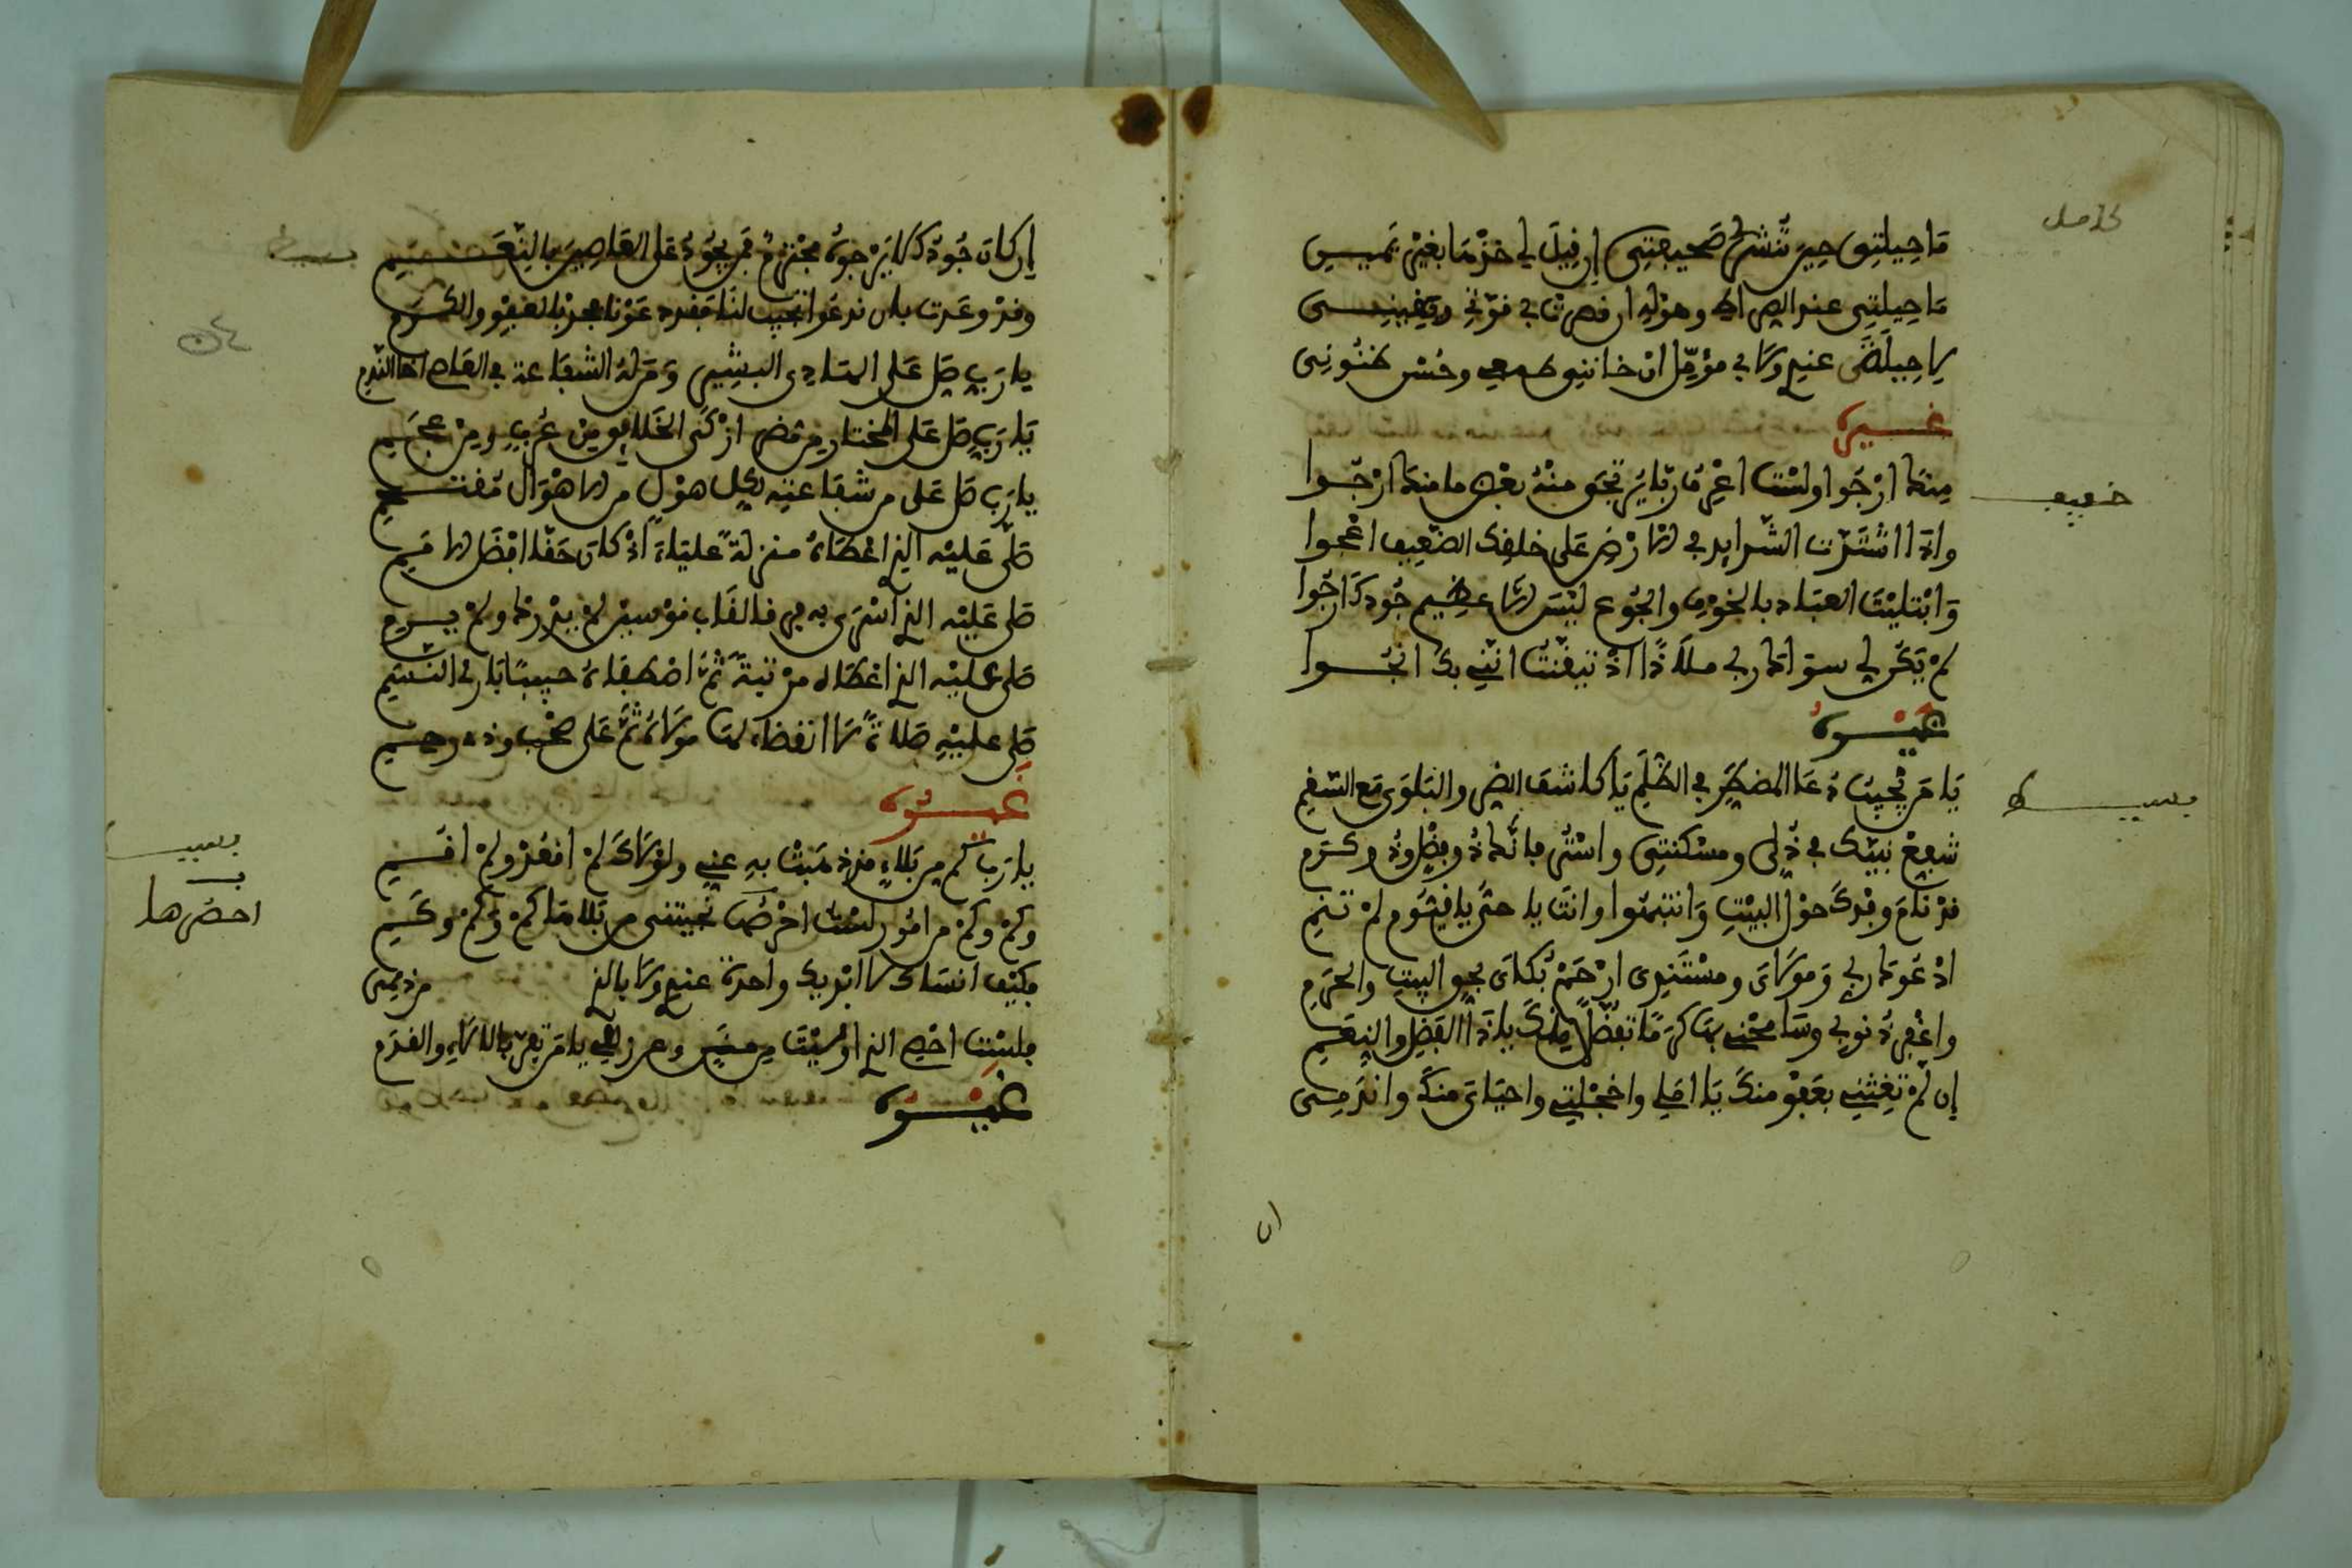 كامل
مَا حِيلَتِي حِينَ تُنْشَرُ لِي صَحِيفَتِي إن قِيلَ لِي خُذْهَا بِغَيْرِ يَمِينِي
مَا حِيلَتِي عند الصراط وهوله ان قصرت بي قوتي ويقيني
لا حِيلَةٌ عندي ولا لي مؤمّل ان خانني طمعي وحُسْن ظنُوني
غيره
خفيف
مِنكَ ارْجُوا ولسْتُ اعْرِفُ رَبًّا يُرْتَجَى مِنْهُ بعْضُ ما منكَ ارْجُوا
واذَا اشْتَدَّتِ الشَّدَايِدُ في الارْضِ عَلى خلقِكَ الضّعِيفِ اعْجُوا
وَابْتَلَيْتَ العِبَادَ بالخَوْفِ والجُوعِ
لمْ يَكُنْ لي سِوَاكَ ربي مَلَاذًا اذْ تيقّنْتُ انّنِي بك انجُوا
غيره
بسيط
يَا مَنْ يُجِيبُ دُعَا المُضطَرِّ في الظُّلَمِ يَا كاشفَ الضرِّ والبَلْوَى مَعَ السَّقَمِ
شفِّعْ نَبِيَّكَ في ذُلِّي ومسْكنتِي واسْتُرْ فإنَّكَ ذُو فضْلٍ وذُو كرَمِ
قدْ نَامَ وفْدُكَ حوْلَ البَيْتِ وَانتبَهُوا وانتَ يا حيُّ يا قيُّوم لمْ تنَمِ
ادْعُوكَ ربي وَموْلَايَ ومسْتَنَدِي ارْحَمْ بُكَايَ بحق البيتِ والحَرَمِ
واغْفِرْ ذُنوبي وسَامِحْنِي بهَا كَرَمًا تفَضُّلًا مِنْكَ يا ذَا الفَضْلِ والنِّعَمِ
إن لمْ تُغِثْنِي بعَفْوٍ منكَ يَا امَلِي واخَجْلَتِي واحيَايَ منكَ واندَمِي
ان
بسيط
إن كانَ جُودُكَ لا يَرْجُوهُ مُجْتَرِمٌ فمَنْ يَجُودُ عَلى العَاصِينَ بالنِّعَمِ
وقدْ وعَدْتَ بان ندعُوا تجيب لنَا فقد دعَوْنَا فجُدْ بالعَفْوِ والكَرَمِ
يا رَبِّ صَلِّ عَلى الهَادِي البشِيرِ وَمَنْ لهُ الشفَاعة في العاصي اخا النّدمِ
يَا رَبِّ صَلِّ عَلى المختارِ مِن مُضَرٍ ازْكَى الخَلايقِ مِنْ عُرْبٍ ومِنْ عَجَمِ
يا رَبِّ صَلِّ عَلى مَن شفَاعتِه لكُل هوْلٍ من الاهْوَالِ مُقْتَحِمِ
صَلَّى عَلَيْهِ الذي اعْطَاهُ منزلةً عليَاءَ اذْ كانَ حَقًّا افْضَلَ الامَمِ
صَلى عَلَيْهِ الذي اسْرَى به فرقا لقَاب قوْسيْنِ لمْ يُدْرَكْ ولمْ يُرَمِ
صَلى عليْهِ الذي اعْطَاه مرْتبَةً ثُمَّ اصْطفَاهُ حبِيبًا بَارِئُ النَّسَمِ
صَلى عليْهِ صَلاةً لا انقضَاء لهَا موْلاهُ ثُمَّ عَلى صَحْبٍ وذي رحِمِ
غيره
بسيط
يا رَبِّ كمْ مِن بَلاءٍ قد ذهَبْتَ بهِ عني ولوْلاكَ لمْ اقعُدْ ولمْ اقُمِ
وكمْ وكمْ من امُورٍ لسْتُ احْصُرُهَا نجيتنِي من بَلاهَا كمْ وَكمْ وكَمِ
ف
احصرها
فكيْفَ انسَاكَ لا ابْرِيكَ واحدةً عندي ولا بالذي من ذممي
فلسْتُ احْصي الذي اوْلَيْتَ
غيره